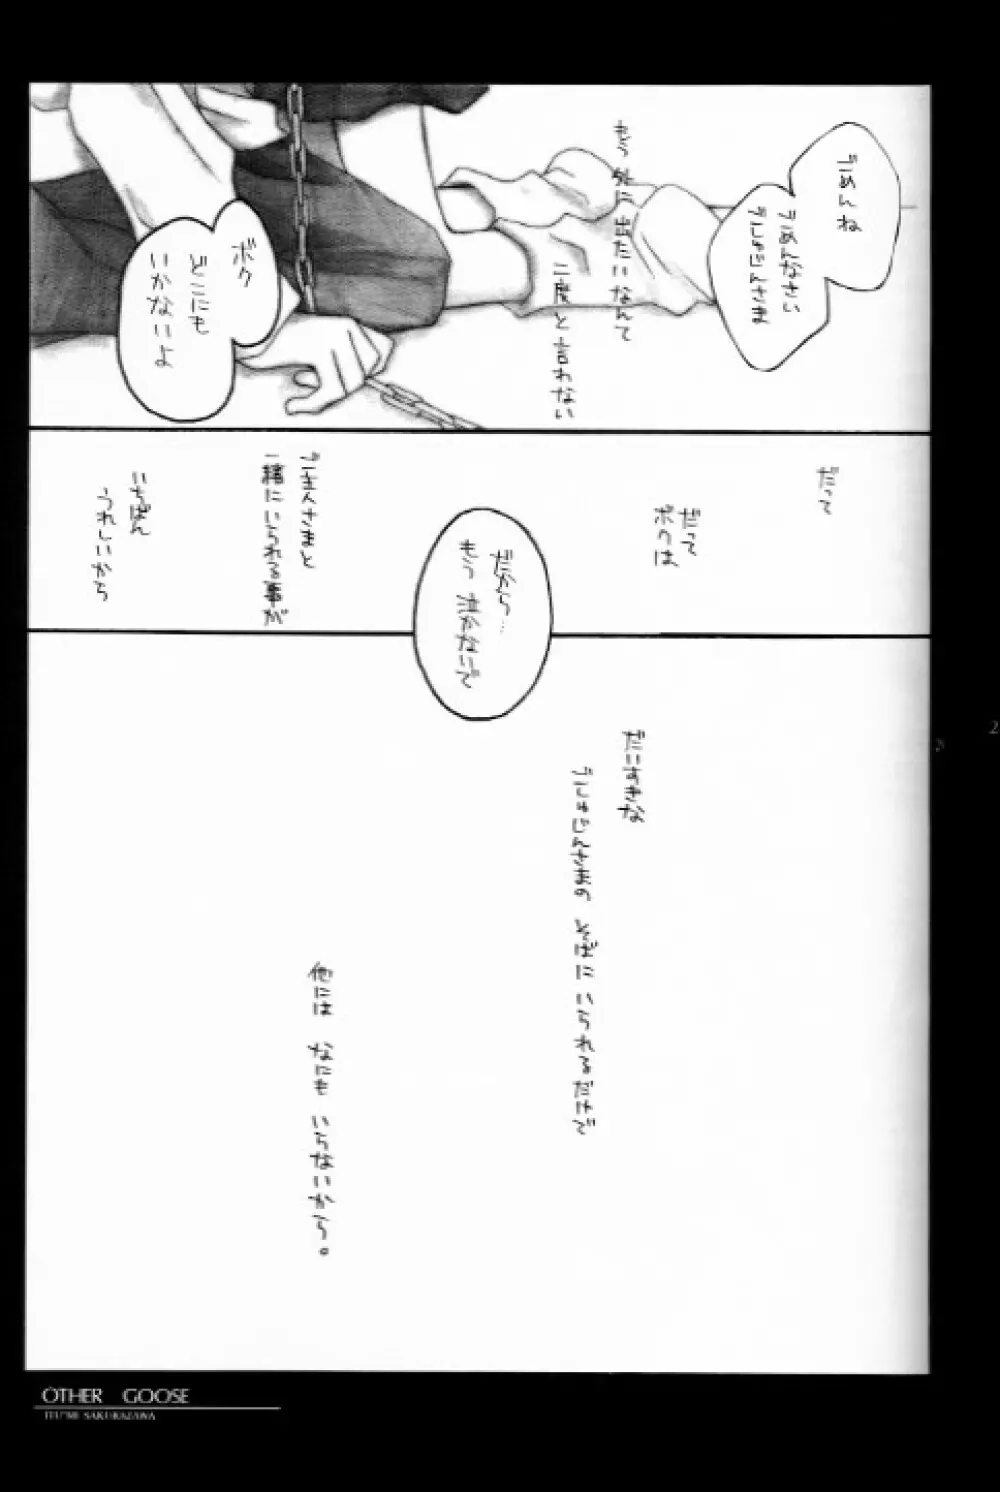 ごめんね
ごめんなさい
ごしゅじんさま
もう 外に 出たいなんて
二度と 言わない
ボク
どこにも
いかないよ
だって
だって
ボクは
ご主人さまと
一緒に いられる事が
いちばん
うれしいから
だから…
もう 泣かないで
だいすきな
ごしゅじんさまの そばに いられるだけで
他には なにも いらないから。
2
OTHER GOOSE
ITU'MI SAKURAZAWA